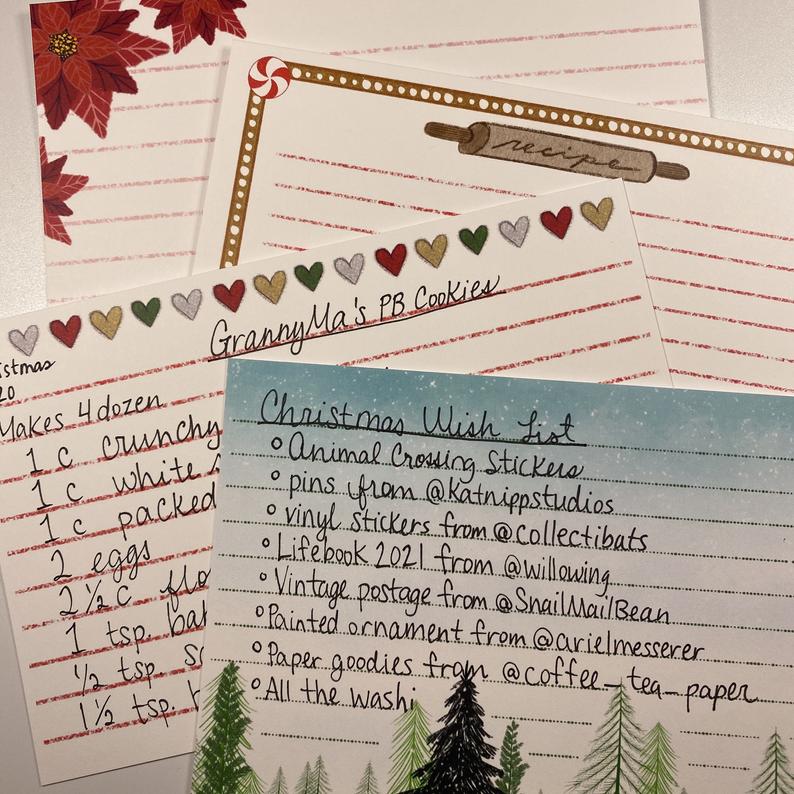 recipe
GrannyMa's PB Cookies
Makes 4 dozen
1 c crunchy
1 c white
1 c packed
2 eggs
2 ½ c
1 tsp.
½ tsp.
1 ½ tsp.
Christmas Wish List
Animal Crossing Stickers
pins from @katnippstudios
vinyl stickers from @collectibats
Lifebook 2021 from @willowing
Vintage postage from @SnailMailBean
Painted ornament from @arielmesserer
Paper goodies from @coffee_tea_paper
All the washi